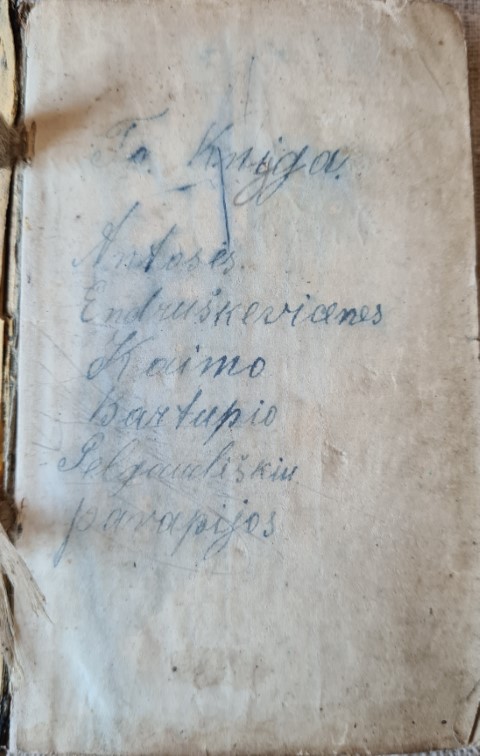 Ta Knyga
Antosės
Endruškevicenes
Kaimo
Bartupio
Pelgaudiškiu
parapijos